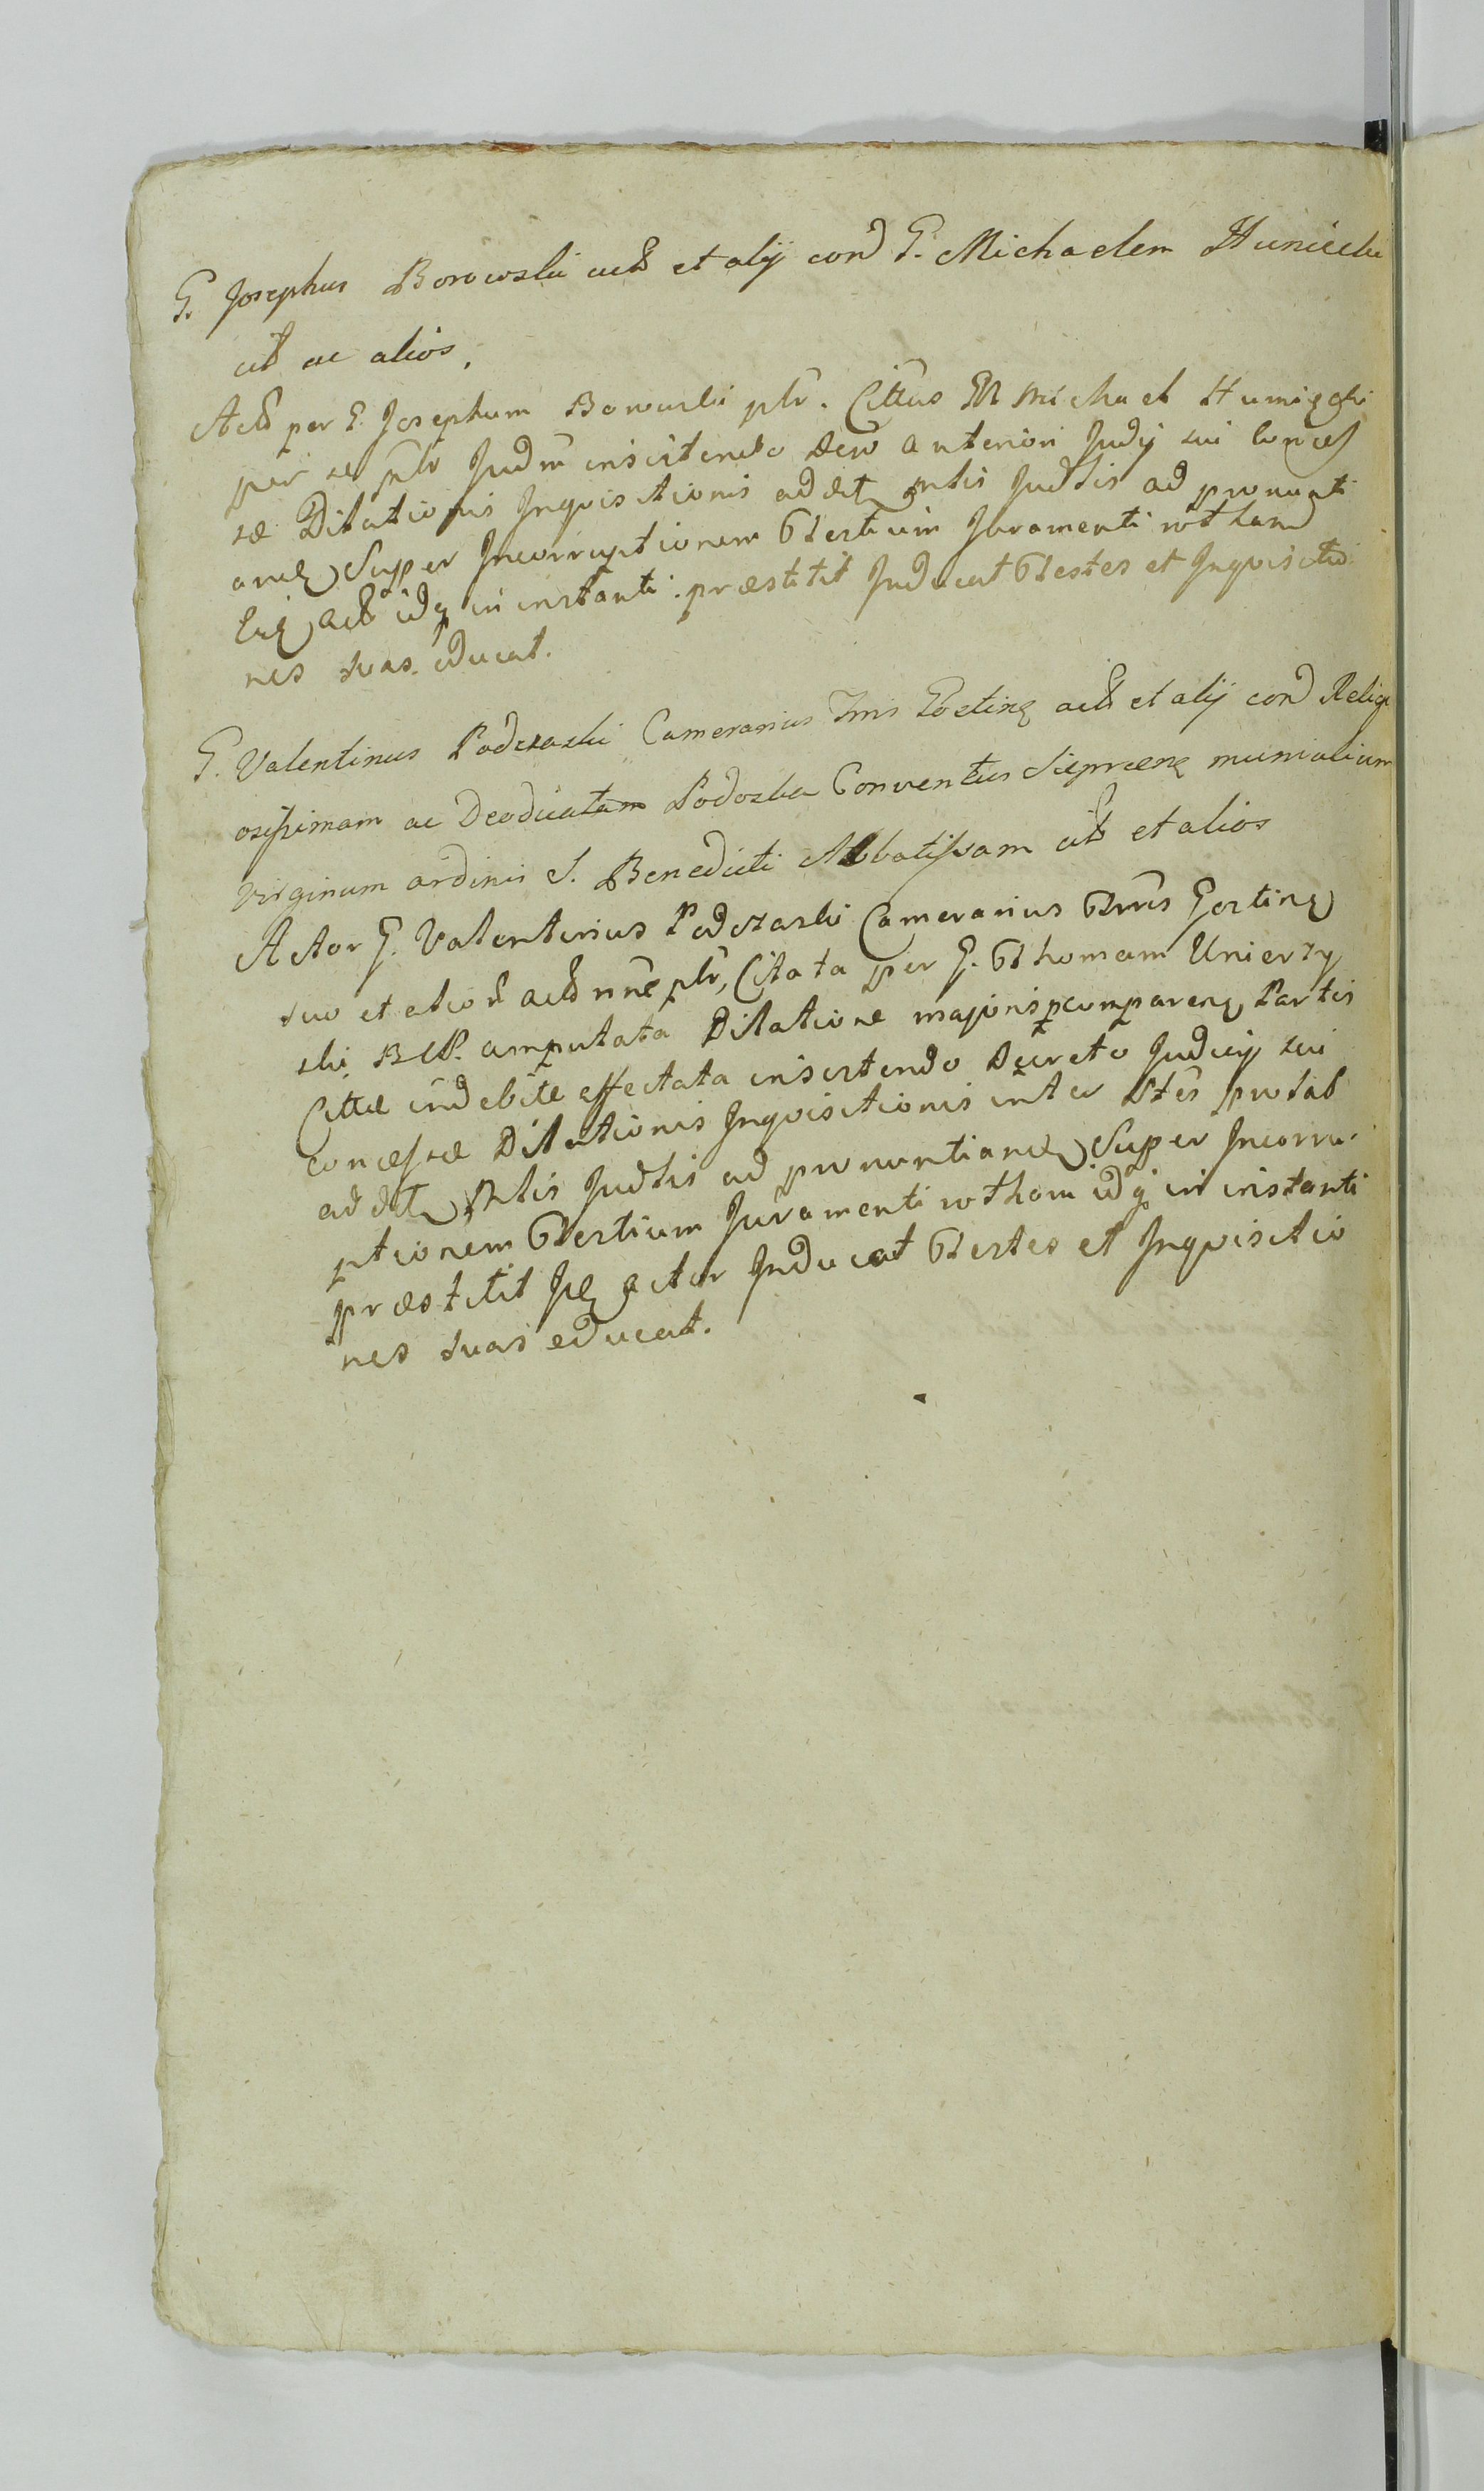 G. Josephus Borowski actr et alij con G. Michaelem Humięcki
citt ac alios,
Actr per G. Josephum Borowski pltr. Cittus M Michael Humięcki
per se pltr Judm insistendo Decro anteriori Judij sui Conces
sæ Dilationis Inqvisitionis addet ntis Judtis ad pronunti
and Super Incorruptionem Testium Juramenti rotham
actr idq in instanti. præstitit Inducat Testes et Inqvisitio
nes suas educat.
G. Valentinus Podczaski Camerarius Trris Gostinen actr et alij con Religi
osissimam ac Deodicatam Podoska Conventus Sieprcen monialium
Virginum ordinis S. Benedicti Abbatissam citt et alios
Actor G. Valentinus Podczaski Camerarius Trris Gostinen
suo et alior actr nne pltr, Citata per G. Thomam Unierzy
ski amputata Dilatione majoris comparen Partis
Cittæ indebite affectata insistendo Decreto Judicij sui
concessæ Dilationis Inqvisitionis inter Ptes probab
addet ntis Judtis ad pronuntiand Super Incorru
ptionem Testium Juramenti rotham idq in instanti
præstitit actor Inducat Testes et Inqvisitio
nes suas educat.